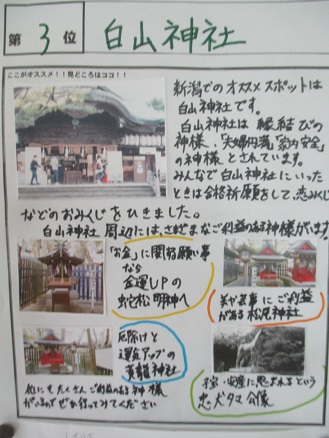 第3位 白山神社
ここがオススメ！！見どころはココ！！
新潟でのオススメスポットは
白山神社です。
白山神社は 縁結びの
神様、「夫婦円満」「家内安全」
の神様とされています。
みんなで白山神社にいった
ときは合格祈願をして、恋みくじ
などのおみくじをひきました。
白山神社 周辺には、さまざまなご利益のある神様がいます
「お金」に関る願い事
なら
金運UPの
蛇松明神へ
美や芸事にご利益
がある松尾神社
厄除けと
運気アップの
黄龍神社
子宝・安産に恵まれるという
忠犬タマ公像
他にもたくさんご利益のある神様
がいるのでぜひ行ってみてください